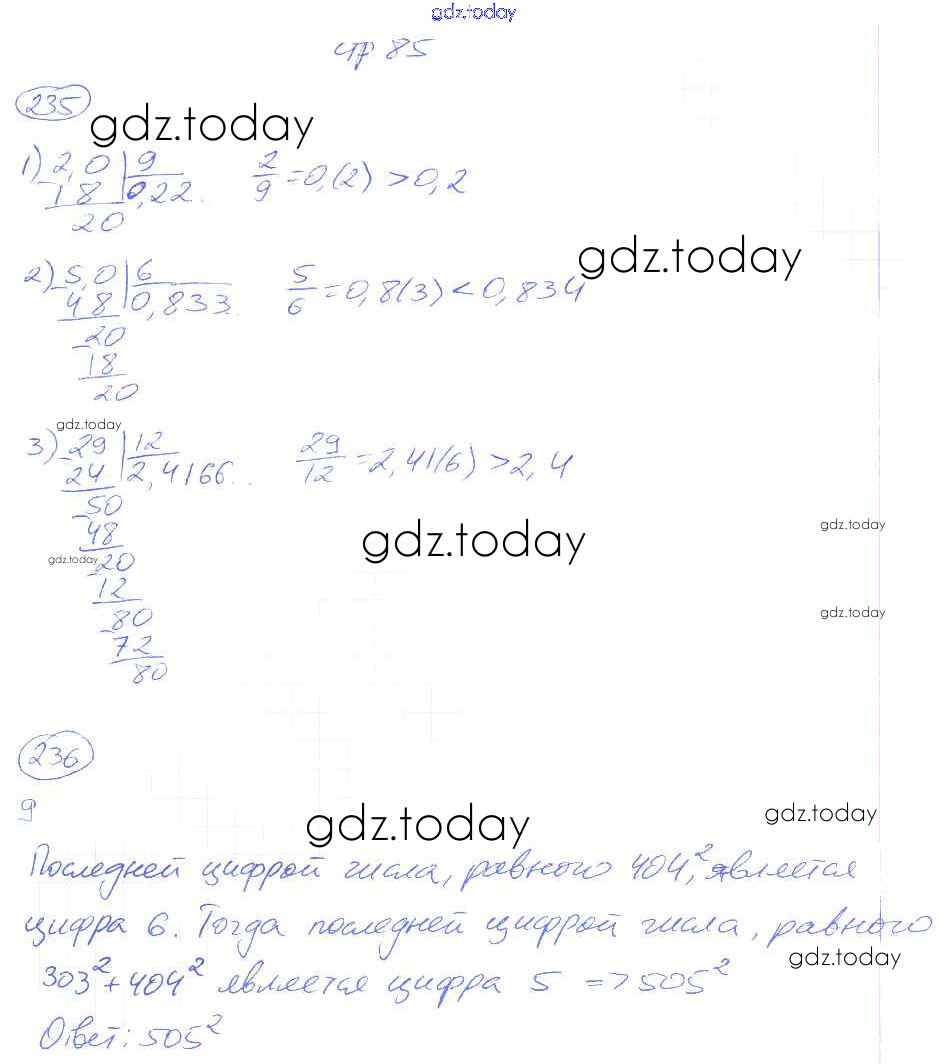 gdz.today
стр. 85
235
gdz.today
1) 2,0 | 9
18 0,22. 2/9 = 0,(2) > 0,2
20
gdz.today
2) 5,0 | 6
48 0,833. 5/6 = 0,8(3) < 0,834
20
18
20
gdz.today
3) 29 | 12
24 2,4166.. 29/12 = 2,41(6) > 2,4
50
48
gdz.today
gdz.today
gdz.today
20
12
80
gdz.today
72
80
236
9
gdz.today
gdz.today
Последней цифрой числа, равного 404², является
цифра 6. Тогда последней цифрой числа, равного
gdz.today
303² + 404² является цифра 5 => 505²
Ответ: 505²